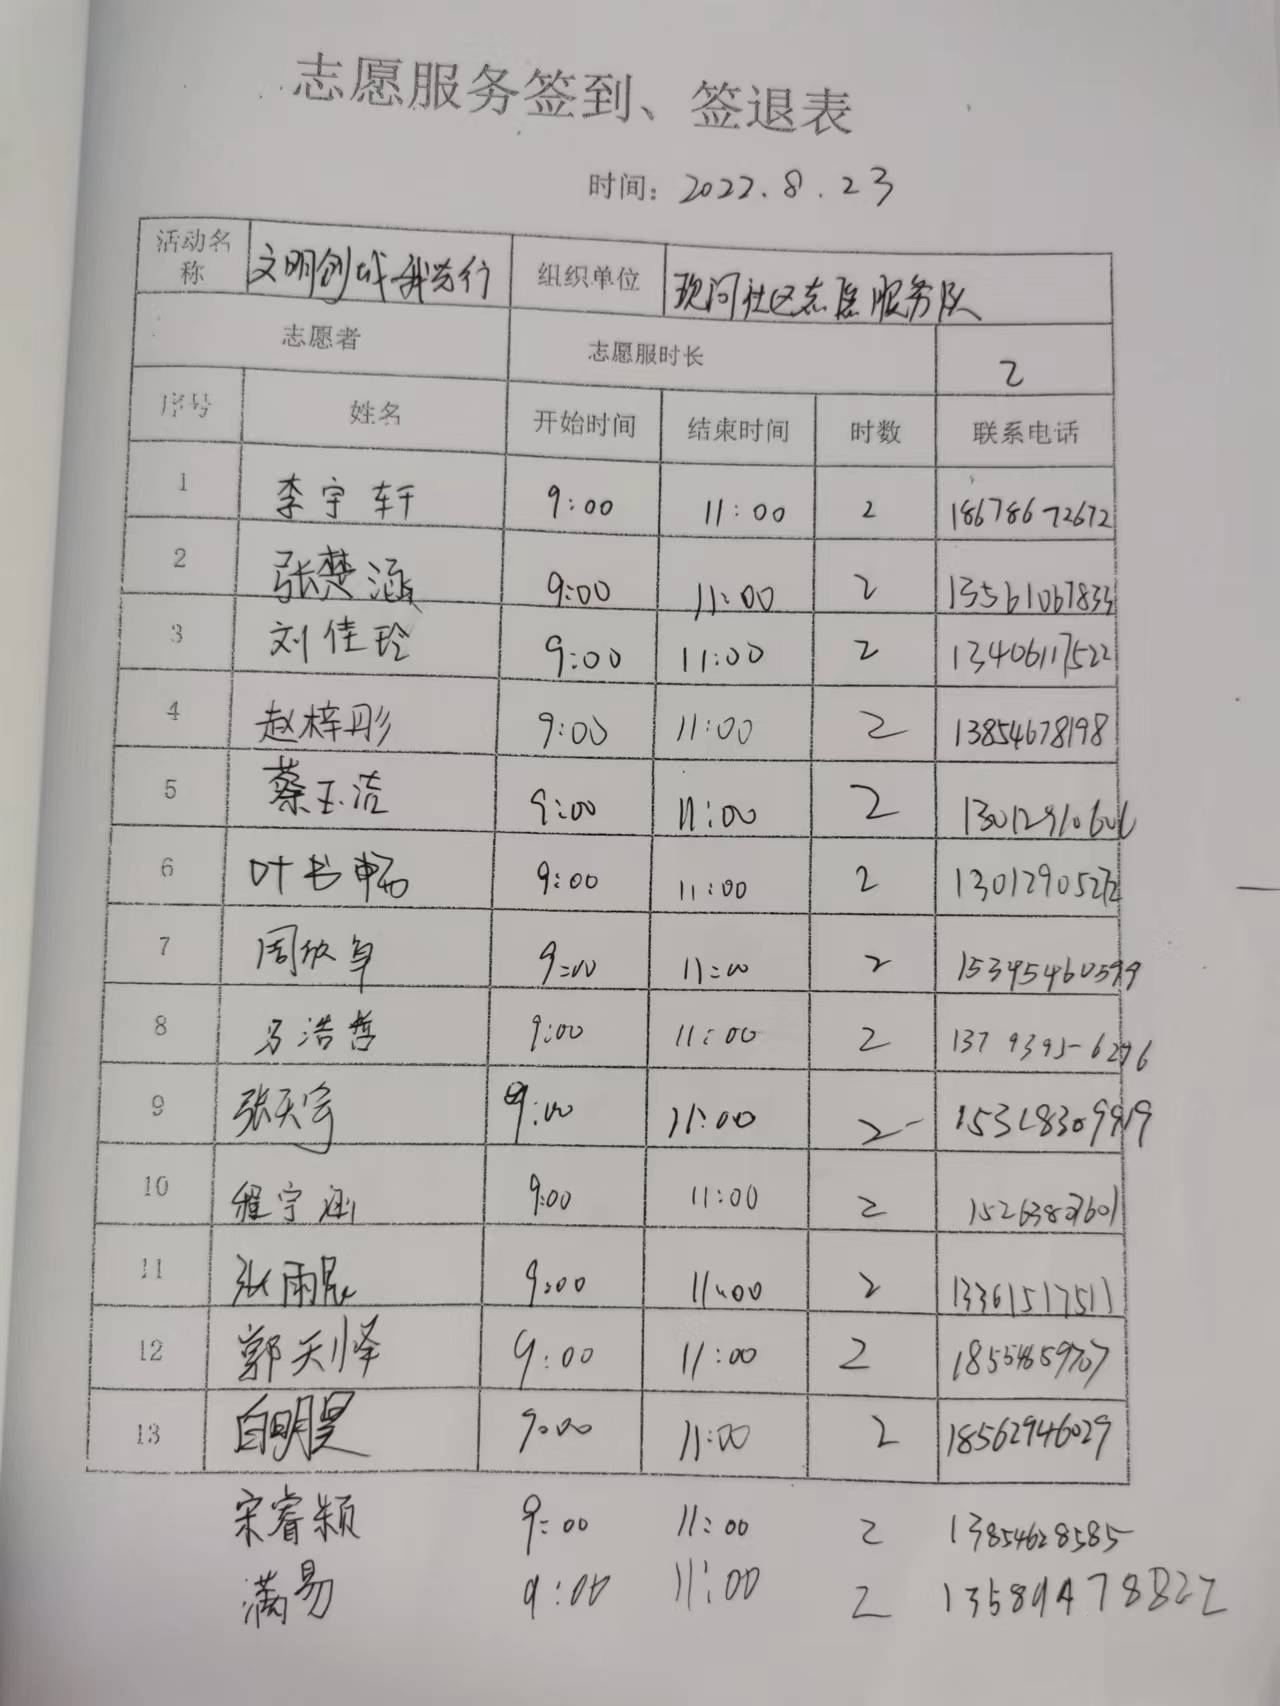 志愿服务签到、签退表
时间：2022.8.23
活动名称 文明创城我先行 组织单位 现河社区志愿服务队
志愿者 志愿服时长 2
序号 姓名 开始时间 结束时间 时数 联系电话
1 李宇轩 9:00 11:00 2 18678672672
2 张楚涵 9:00 11:00 2 13561067833
3 刘佳玲 9:00 11:00 2 13406117522
4 赵梓彤 9:00 11:00 2 13854678198
5 蔡玉洁 9:00 11:00 2 13012910606
6 叶书畅 9:00 11:00 2 13012905272
7 周欣卓 9:00 11:00 2 15345460599
8 马浩哲 9:00 11:00 2 13793956276
9 张天宇 9:00 11:00 2 15318309919
10 程宇涵 9:00 11:00 2 15263827601
11 张雨晨 9:00 11:00 2 13361517511
12 郭天怿 9:00 11:00 2 18554659707
13 白明昊 9:00 11:00 2 18562946029
宋睿颖 9:00 11:00 2 13854628585
满易 9:00 11:00 2 13589478822